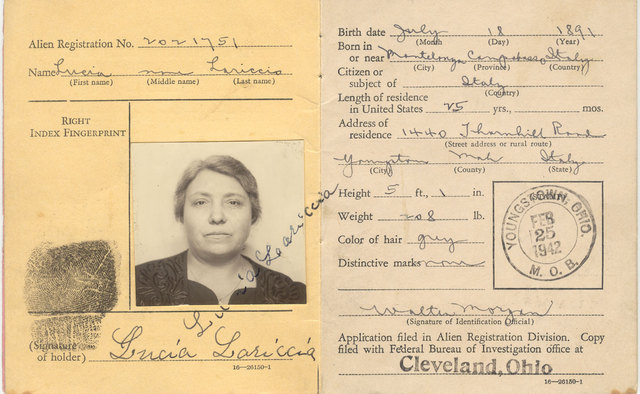 Alien Registration No. 2021751
Name Lucia none Lariccia
(First name) (Middle name) (Last name)
RIGHT
INDEX FINGERPRINT
Lucia Lariccia
(Signature
of holder) Lucia Lariccia
16—26150-1
Birth date July 18 1891
(Month (Day) (Year)
Born in
or near Montelongo Campobasso Italy
(City) (Province) (Country)
Citizen or
subject of Italy
(Country)
Length of residence
in United States 25 yrs., mos.
Address of
residence 1440 Thornhill Road
(Street address or rural route)
Youngstown Mah Italy
(City) (County) (State)
Height 5 ft., 1 in.
Weight 208 lb.
Color of hair grey
Distinctive marks none
YOUNGSTOWN, OHIO.
FEB
25
1942
M.O.B.
Walter Morgan
(Signature of Identification Official)
Application filed in Alien Registration Division. Copy
filed with Federal Bureau of Investigation office at
Cleveland, Ohio
16—26150-1